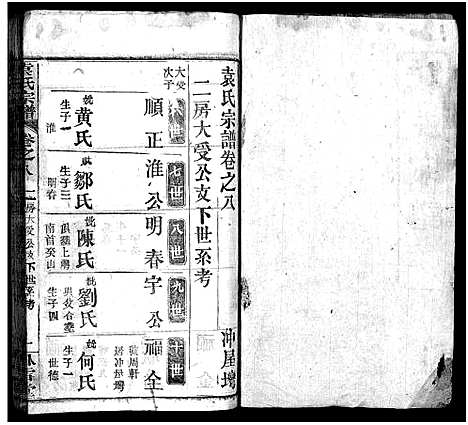 袁氏宗譜卷之八
二房大受公支下世系考
冲屋塆
大受
次子
六世
七世
八世
九世
十世
順正
淮公
明春
宇公
福全
妣黄氏
生子一
淮
妣鄒氏
生子三
明春
妣陳氏
俱葬上灣
南首癸山
妣劉氏
與敘合塋
生子四
號周軒
居冲屋塆
妣何氏
生子一
世德
袁氏宗譜
卷之八
二房大受公支下世系考